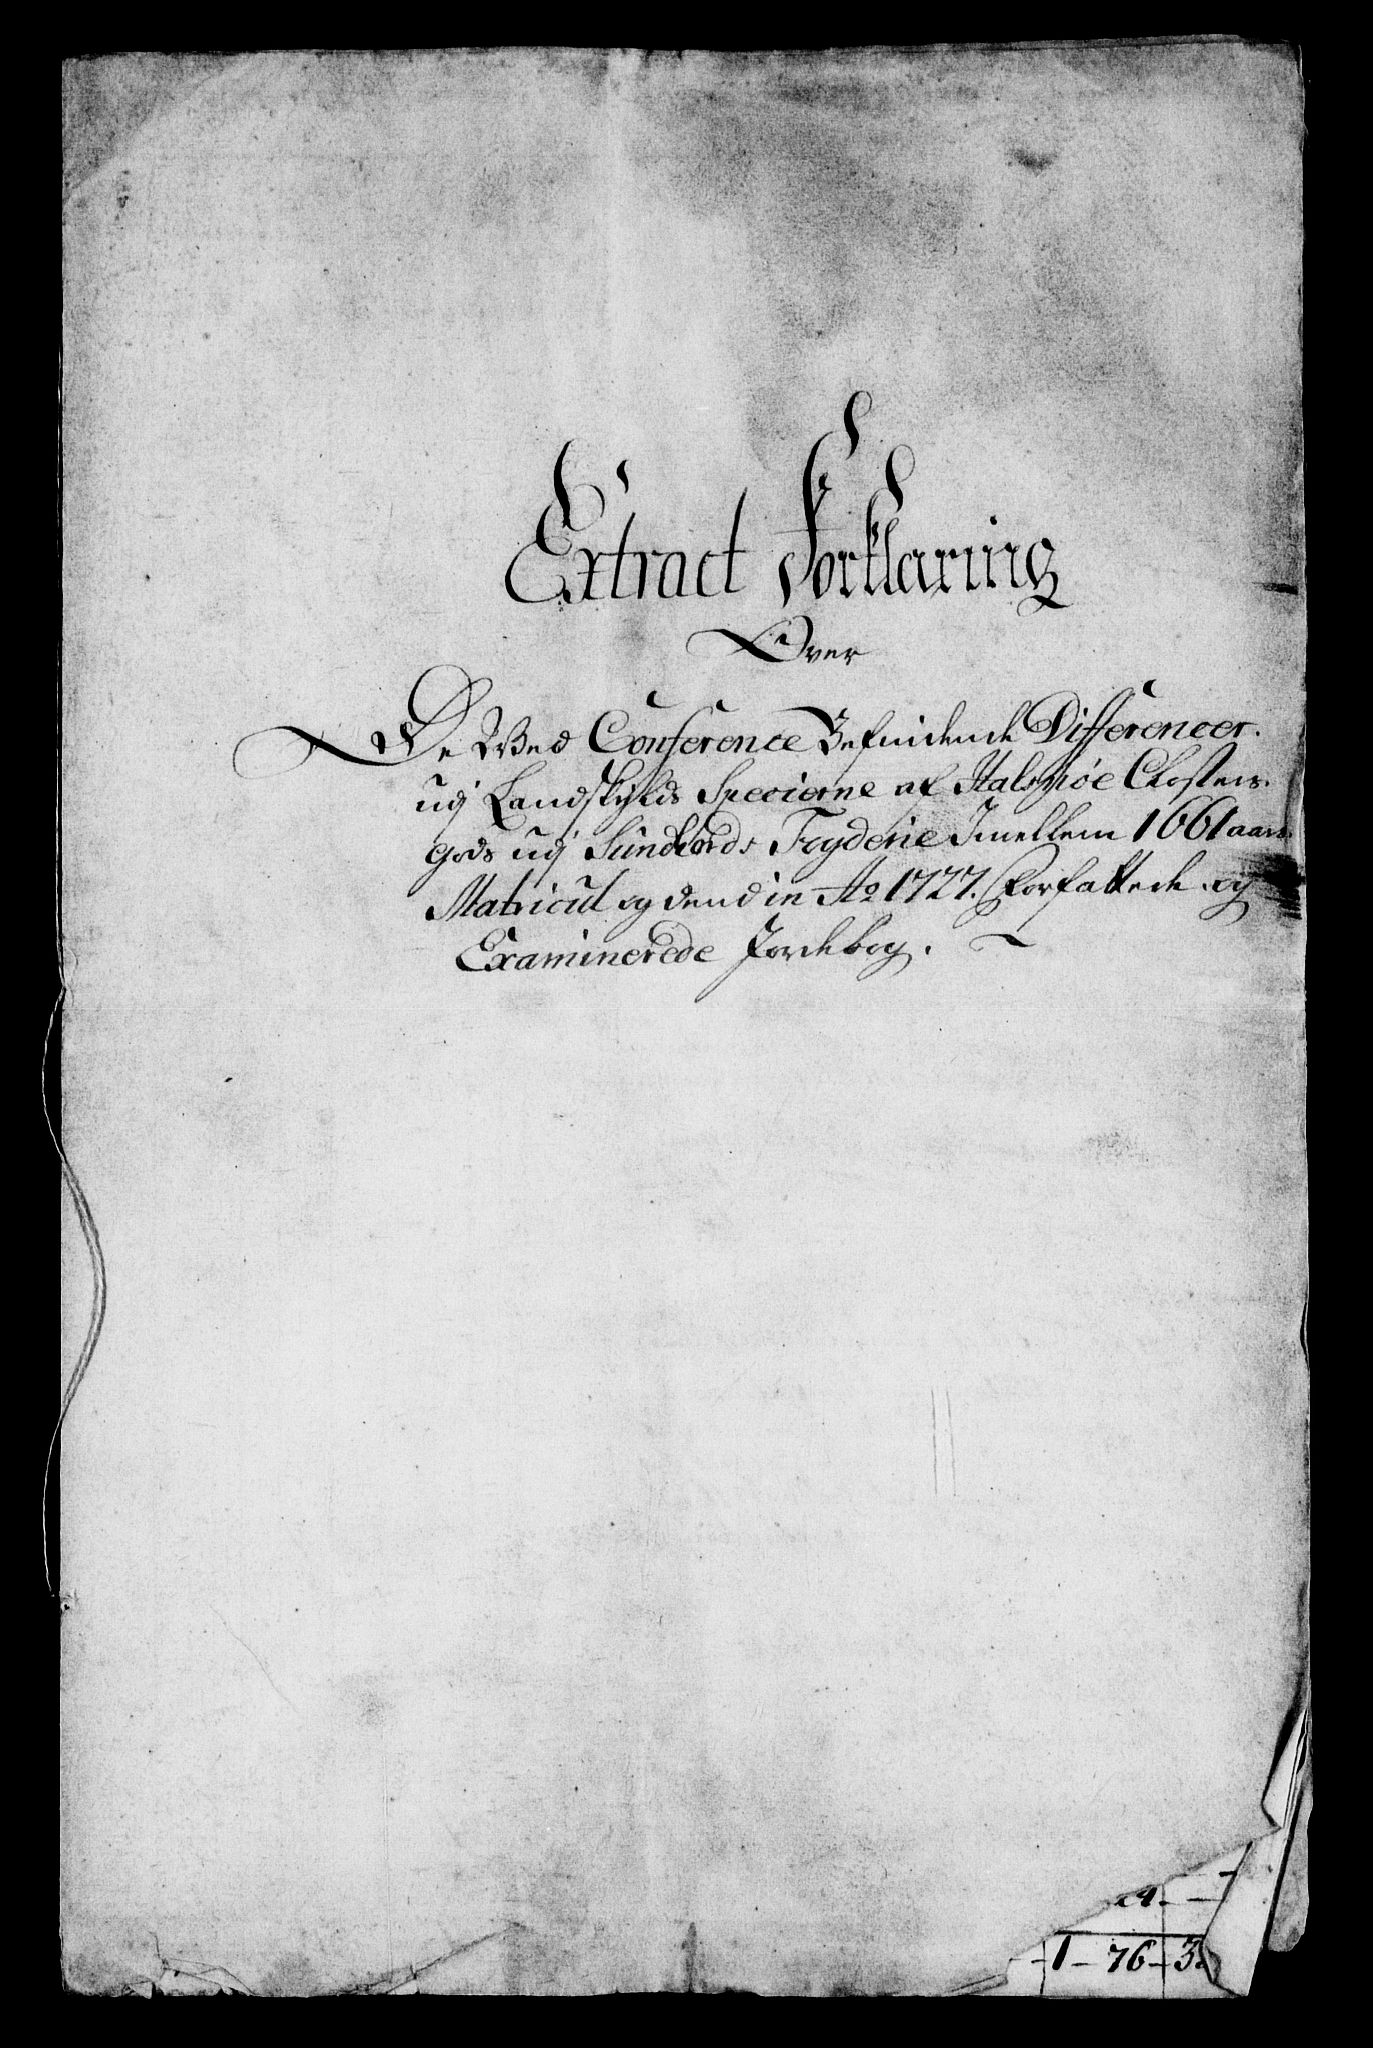 Extract Forklaring
Over
De Wed Conference Befindende Differencer.
udj Landskylds Specierne af Halsnöe Closters
gods udj Sundfords Fogderie Imellem 1661 aars
Matricul og dend in Ao 1727. Forfattede og
Examinerede Jordebog.
24. —
1 — 76 — 3.